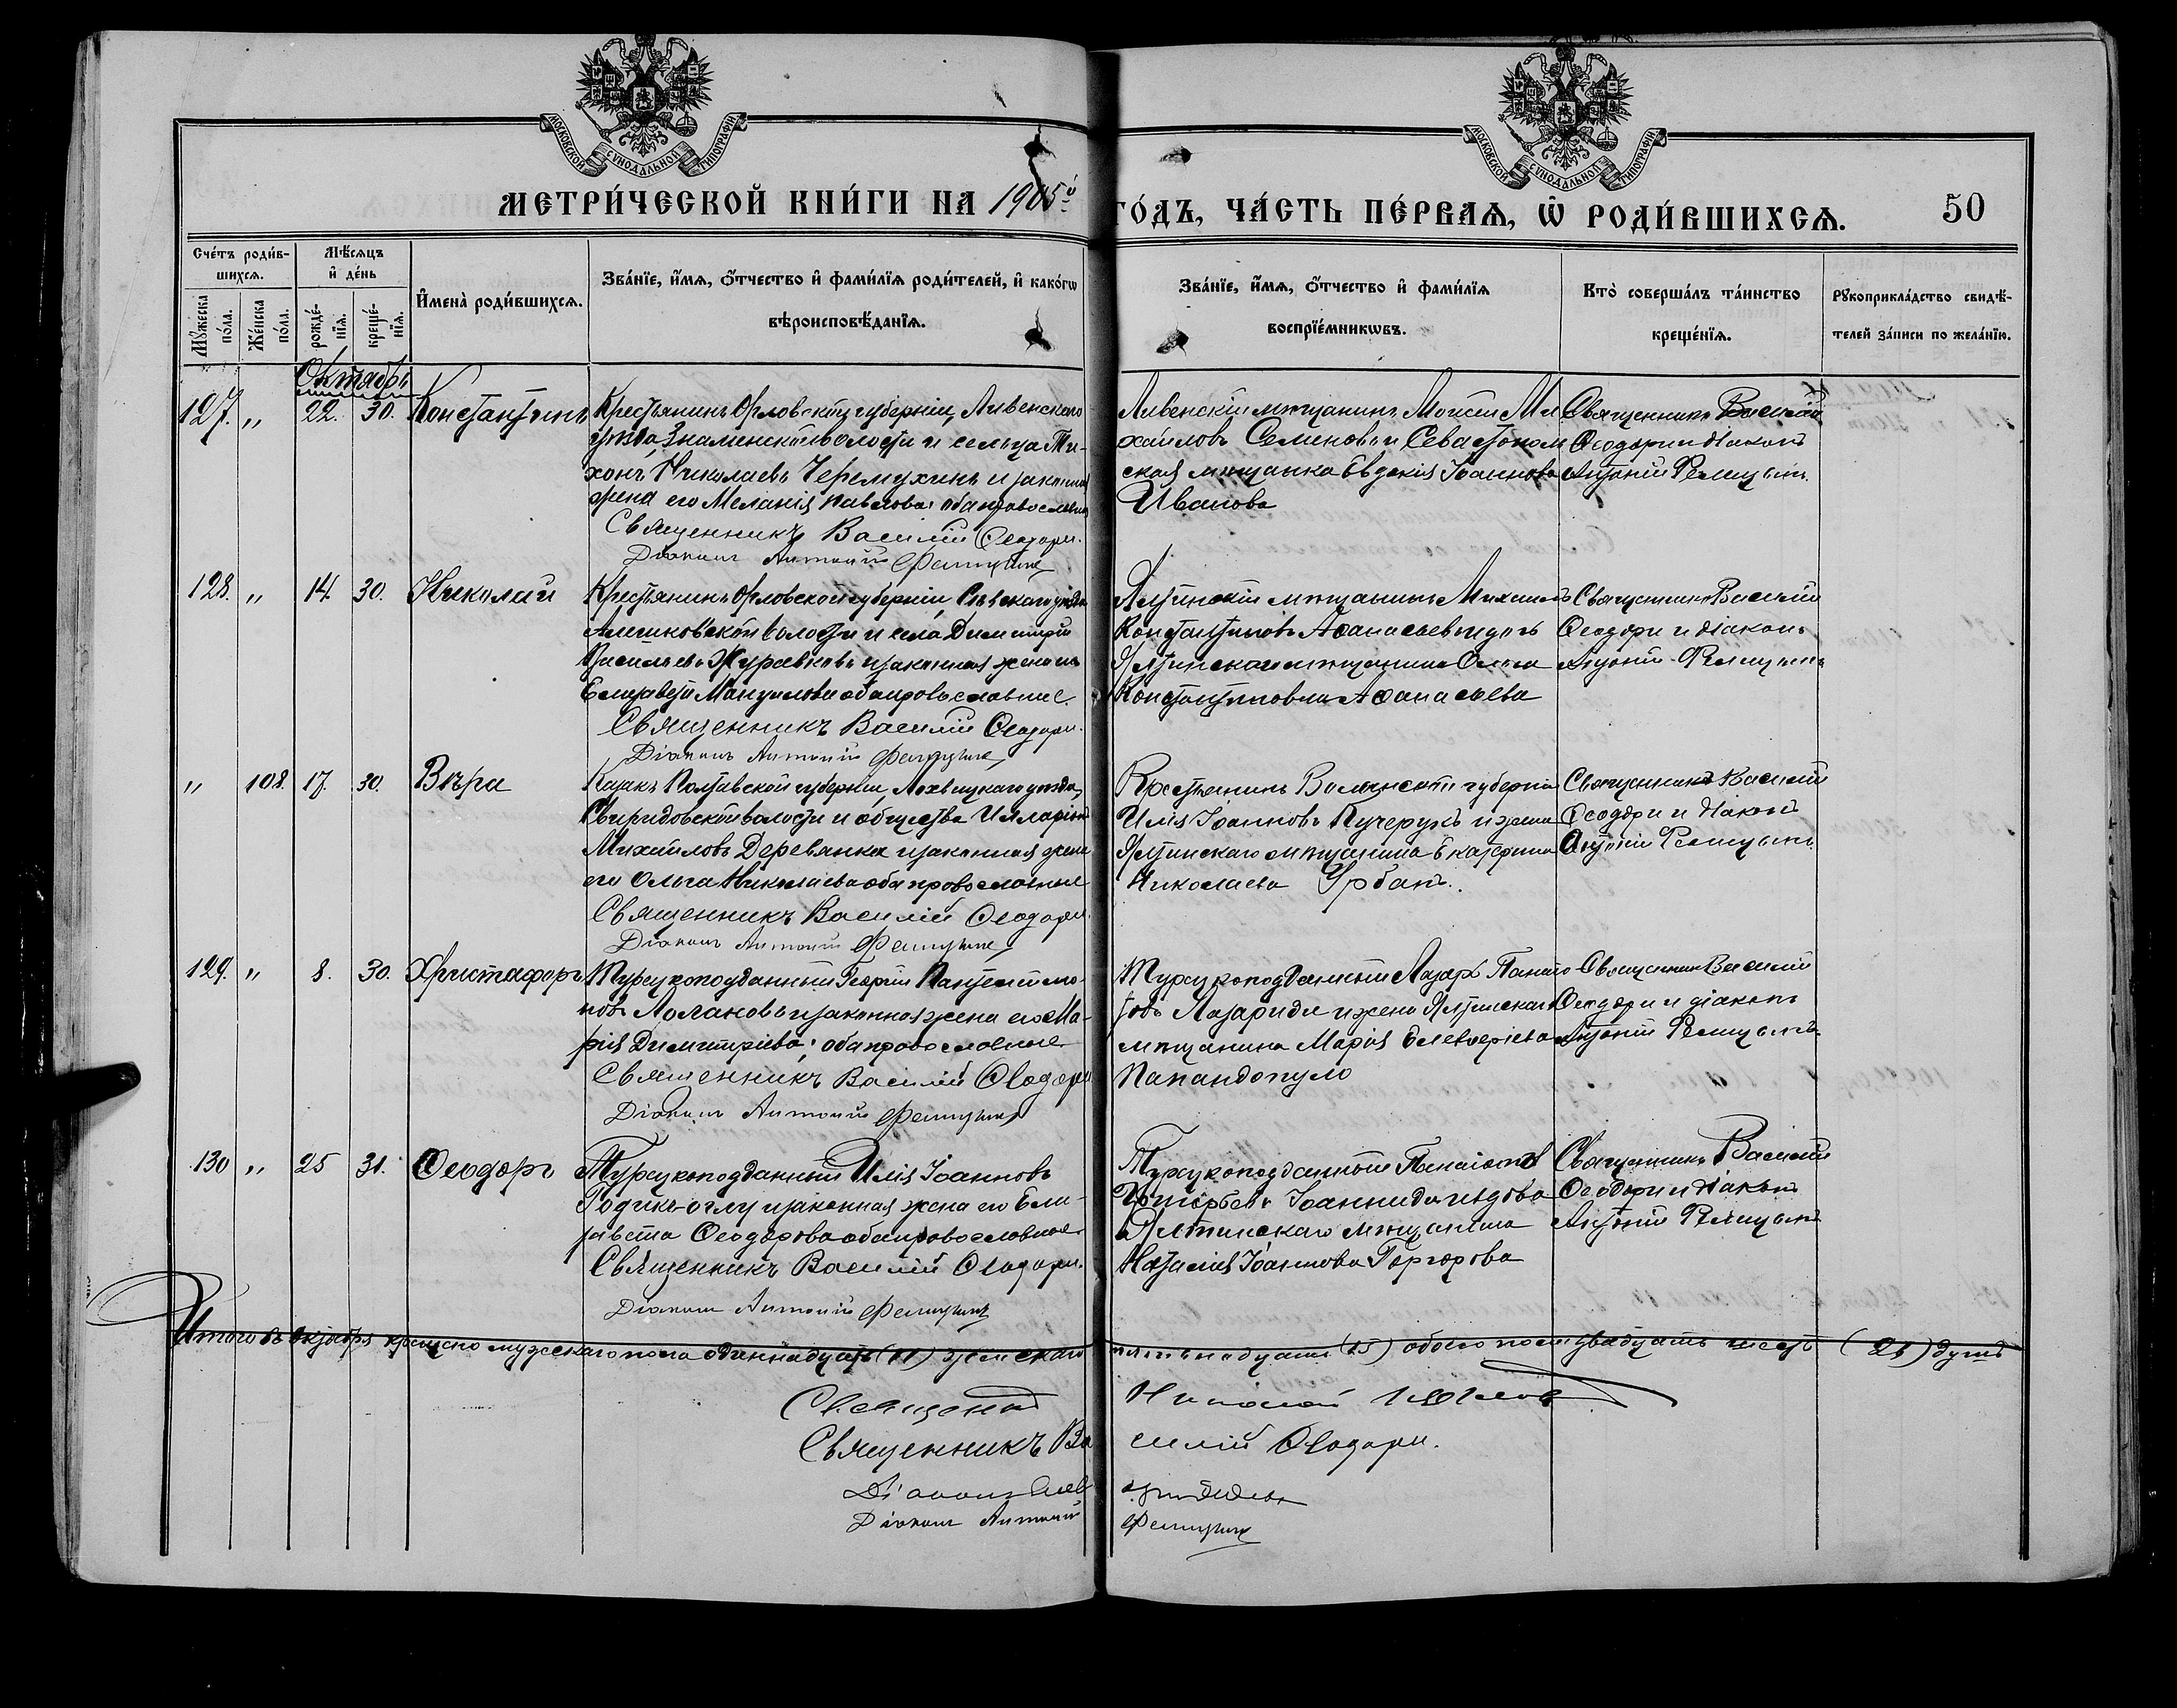 МОСКОВСКОЙ СУНОДАЛЬНОЙ ТИПОГРАФІИ
МОСКОВСКОЙ СУНОДАЛЬНОЙ ТИПОГРАФІИ
МЕТРИ́ЧЕСКОЙ КНИ́ГИ НА 1905й
ГО́ДЪ, ЧА́СТЬ ПЕ́РВАѦ, Ѡ҆ РОДИ́ВШИХСѦ.
50
Сче́тъ роди́в-
шихсѧ.
Мѣ́сѧцъ
и҆ де́нь
И҆мена̀ роди́вшихсѧ.
Зва́нїе, и҆́мѧ, ѻ҆́тчество и҆ фами́лїѧ роди́телей, и҆ како́гѡ
вѣроисповѣ́данїѧ.
Зва́нїе, и҆́мѧ, ѻ҆́тчество и҆ фами́лїѧ
воспрїе́мникѡвъ.
Кто̀ соверша́лъ та́инство
креще́нїѧ.
Рꙋкоприкла́дство свидѣ́-
телей за́писи по жела́нїю.
Мꙋ́жеска
по́ла.
Же́нска
по́ла.
рожде́-
нїѧ.
креще́-
нїѧ.
Октябрь
127. „ 22. 30. Константинъ
Крестьянинъ Орловской губерніи, Ливенскаго
уѣзда, Знаменской волости и сельца Ти-
хонъ Николаевъ Черемухинъ и законная
жена его Меланія Павлова; оба православные
Священникъ Василій Ѳеодори.
Діаконъ Антоній
Ливенскій мѣщанинъ Моисей Ми
хаиловъ Семеновъ и Севастополь
ская мѣщанка Евдокія Іоаннова
Иванова
Священникъ Василій
Ѳеодори и діаконъ
Антоній
128. „ 14. 30. Николай
Крестьянинъ Орловской губерніи, уѣзда
волости и села Димитрій
Васильевъ Журавковъ и законная жена его
Елизавета оба православные.
Священникъ Василій Ѳеодори.
Діаконъ Антоній
Ялтинскій мѣщанинъ Михаилъ
Константиновъ Аѳанасьевъ и дочь
Ялтинскаго мѣщанина Ольга
Константиновна Аѳанасьева
Священникъ Василій
Ѳеодори и діаконъ
Антоній
„ 108. 17. 30. Вѣра
Казакъ Полтавской губерніи, Лохвицкаго уѣзда,
Свиридовской волости и общества Илларіонъ
Михайловъ Деревянка и законная жена
его Ольга Николаева оба православные
Священникъ Василій Ѳеодори.
Діаконъ Антоній
Крестьянинъ Волынской губерніи
Илія Іоанновъ Кучерукъ и жена
Ялтинскаго мѣщанина Екатерина
Николаева Урбанъ.
Священникъ Василій
Ѳеодори и діаконъ
Антоній
129. „ 8. 30. Христафоръ
Турецкоподданный Георгій Пантелеймо-
новъ и законная жена его Ма-
рія Димитріева; оба православные
Священникъ Василій Ѳеодори
Діаконъ Антоній
Турецкоподданный Лазарь Панаіо
товъ Лазариди и жена Ялтинскаго
мѣщанина Марія Елевѳеріева
Папандопуло
Священникъ Василій
Ѳеодори и діаконъ
Антоній
130 „ 25 31. Ѳеодоръ
Турецкоподданный Илія Іоанновъ
и законная жена его Ели-
завета Ѳеодорова оба православные
Священникъ Василій Ѳеодори.
Діаконъ Антоній
Турецкоподданный Панаіотъ
Іоанниди и вдова
Ялтинскаго мѣщанина
Наталія Іоаннова
Священникъ Василій
Ѳеодори и діаконъ
Антоній
Итого въ октябрѣ крещено мужескаго пола одиннадцать (11) женскаго пятьнадцать (15) обоего пола двадцать шесть (26) душъ
Священникъ Николай
Священникъ Василій Ѳеодори.
Діаконъ
Діаконъ Антоній